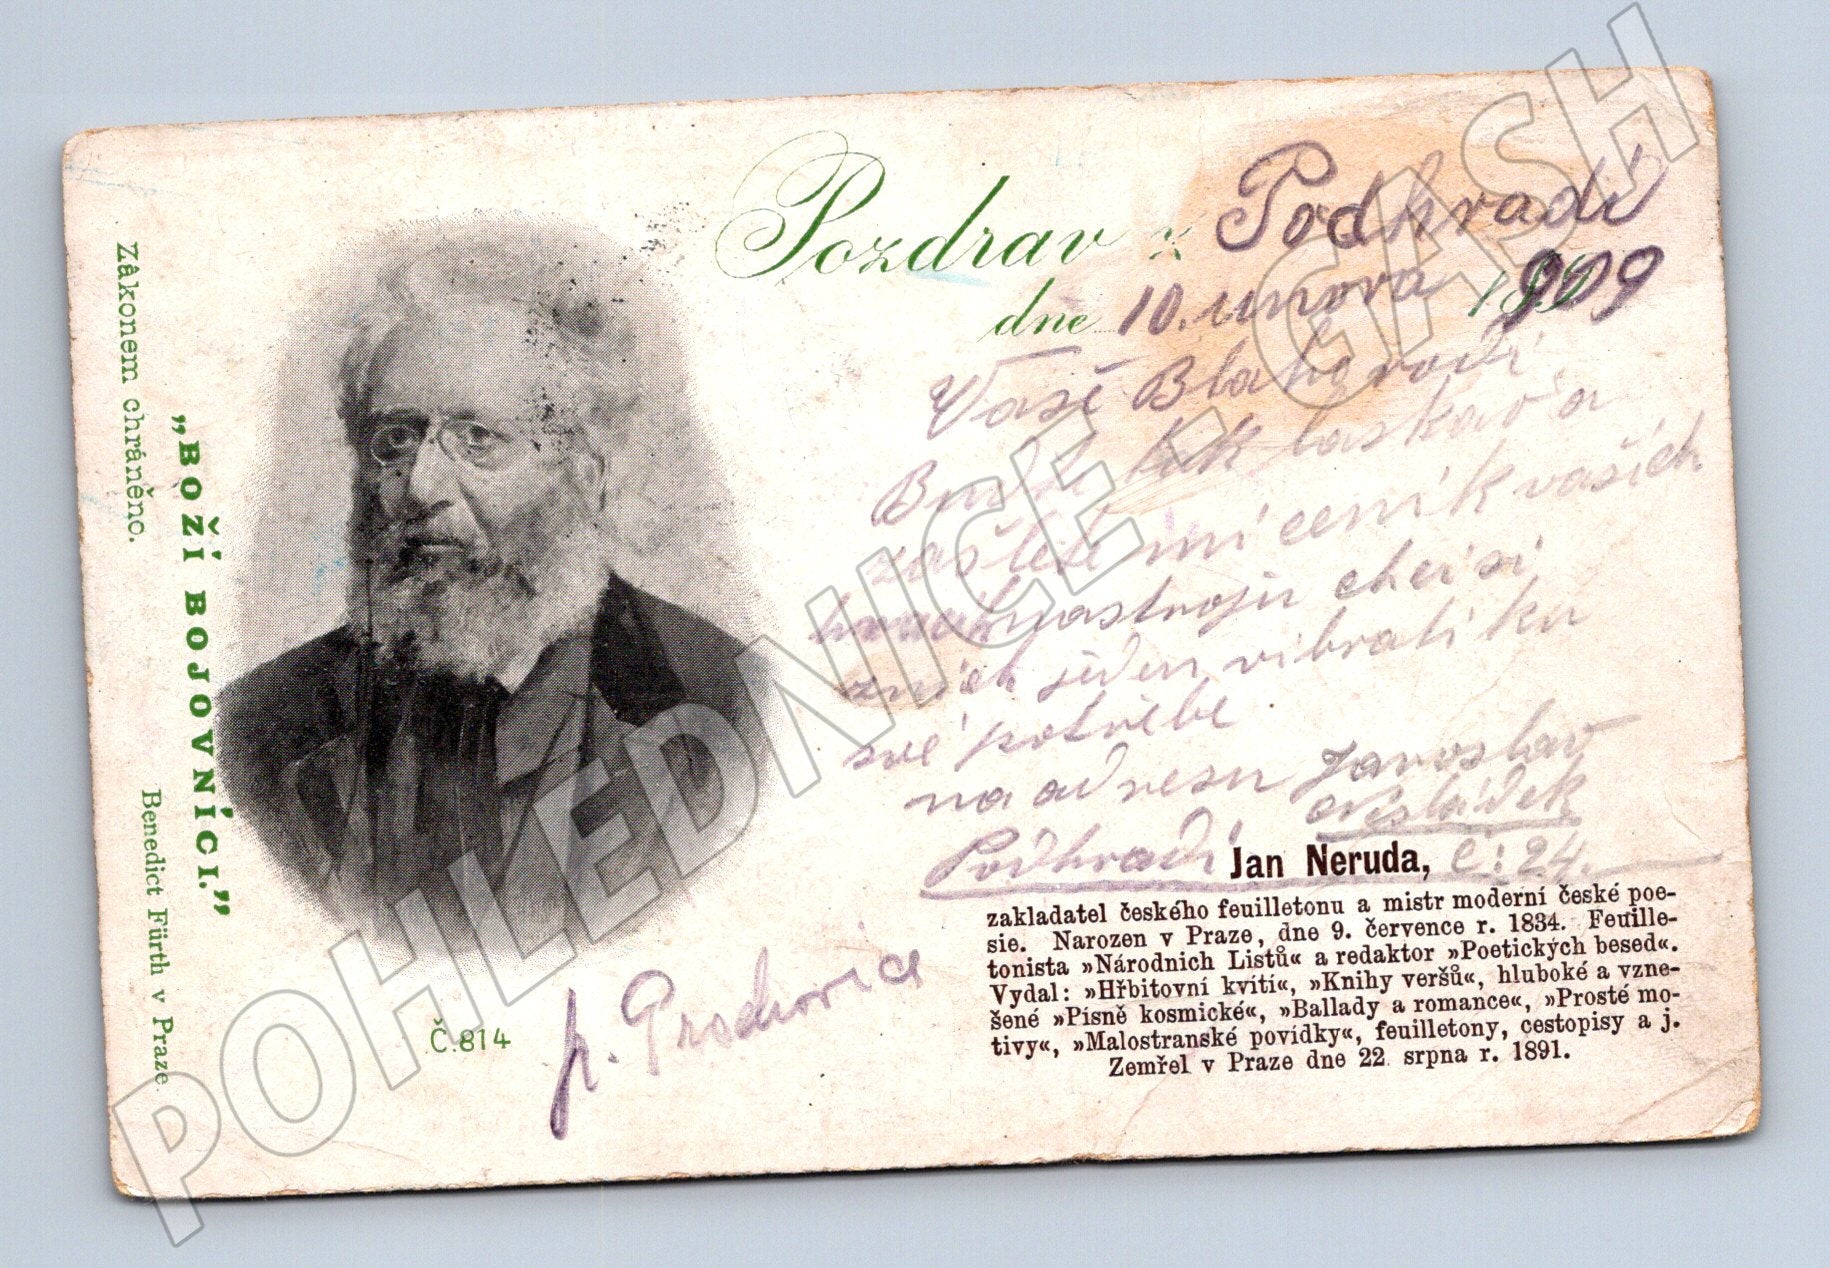 Pozdrav z Podhradí
dne 10. unora 1909
Vaše Blahorodí.
Budte tak laskav a
zašlete mi ceník vašich
nastroju chci si
z nich jeden vibrati ku
své potřebe
na adresu Jaroslav
Podhradí č: 24.
p. Prachovice
Jan Neruda,
zakladatel českého feuilletonu a mistr moderní české poe-
sie. Narozen v Praze, dne 9. července r. 1834. Feuille-
tonista »Národnich Listů« a redaktor »Poetických besed«.
Vydal: »Hřbitovní kvítí«, »Knihy veršů«, hluboké a vzne-
šené »Písně kosmické«, »Ballady a romance«, »Prosté mo-
tivy«, »Malostranské povídky«, feuilletony, cestopisy a j.
Zemřel v Praze dne 22. srpna r. 1891.
Č. 814
„BOŽÍ BOJOVNÍCI."
Zákonem chráněno.
Benedict Fürth v Praze
POHLEDNICE - GASH